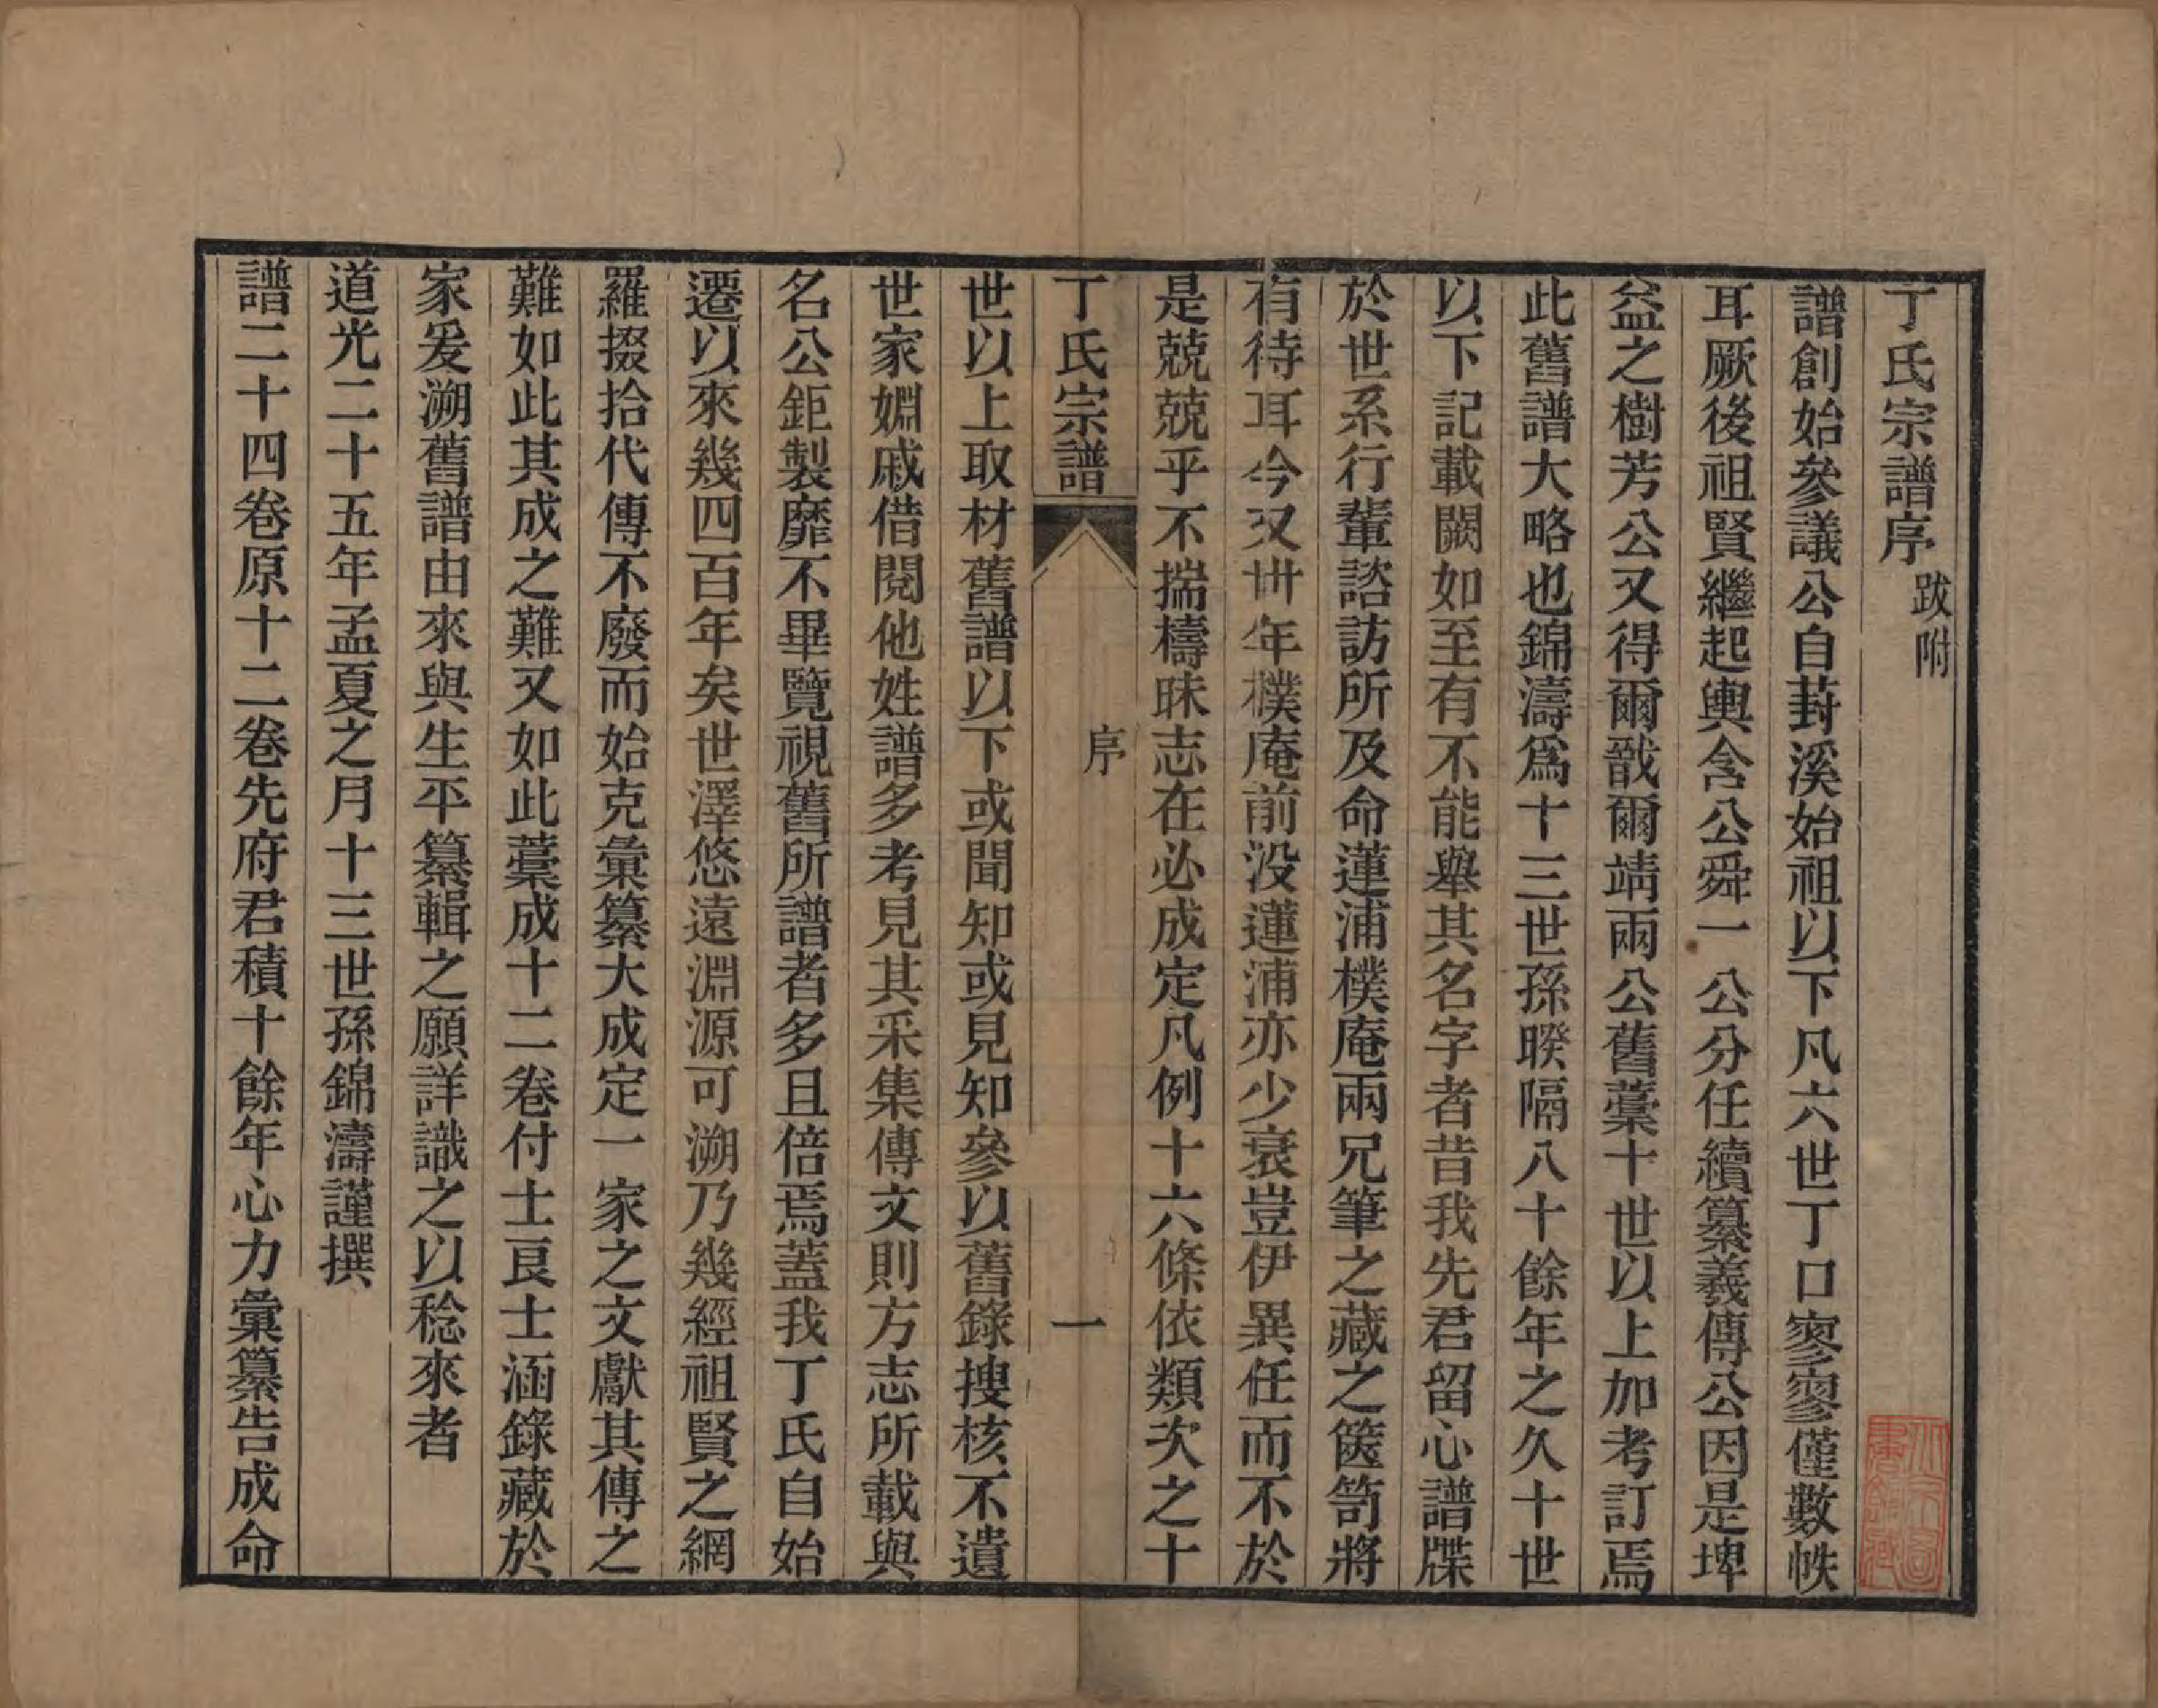 丁氏宗譜序 跋附
譜創始參議公自葑溪始祖以下凡六世丁口寥寥僅數帙
耳厥後祖賢繼起輿含公舜一公分任續纂羲傳公因是埤
益之樹芳公又得爾戩爾靖兩公舊藁十世以上加考訂焉
此舊譜大略也錦濤為十三世孫睽隔八十餘年之久十世
以下記載闕如至有不能舉其名字者昔我先君留心譜牒
於世系行輩諮訪所及命蓮浦樸庵兩兄筆之藏之篋笥將
有待耳今又卅年樸庵前没蓮浦亦少衰豈伊異任而不於
是兢兢乎不揣檮昧志在必成定凡例十六條依類次之十
丁氏宗譜 序 一
世以上取材舊譜以下或聞知或見知參以舊錄搜核不遺
世家姻戚借閱他姓譜多考見其采集傳文則方志所載與
名公鉅製靡不畢覽視舊所譜者多且倍焉蓋我丁氏自始
遷以來幾四百年矣世澤悠遠淵源可溯乃幾經祖賢之網
羅掇拾代傳不廢而始克彙纂大成定一家之文獻其傳之
難如此其成之難又如此藁成十二卷付士良士涵錄藏於
家爰溯舊譜由來與生平纂輯之願詳識之以稔來者
道光二十五年孟夏之月十三世孫錦濤謹撰
譜二十四卷原十二卷先府君積十餘年心力彙纂告成命